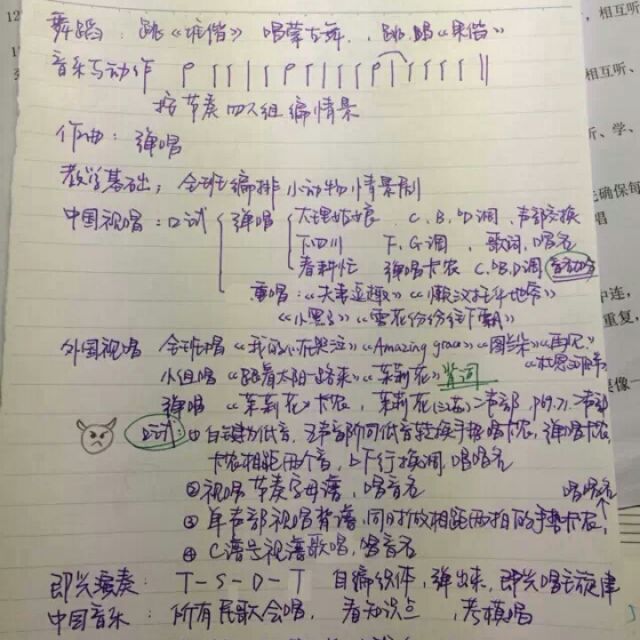 舞蹈：跳《谁偕》唱蒙古舞，跳、唱《果偕》
音乐与动作
按节奏四人组编情景
作曲：弹唱
教学基础：全班编排小动物情景剧
中国视唱：口试 弹唱 大理姑娘 C、B、bD调，声部交换
下四川 F、G调，歌词，唱名
春耕忙 弹唱卡农 C、bB、D调
重唱："夫妻逗趣""懒汉
"小黑子""雪花纷纷往下飘"
外国视唱 全班唱《我的心在哭泣》《Amazing grace》《图兰朵》
小组唱《跟着太阳一路来》《茉莉花》背词
弹唱《茉莉花》卡农，茉莉花(江苏)二声部，P69.71.二声部
口试：① 白键为低音，五声音阶同低音转换手指唱卡农，弹唱卡农
卡农相距两个音，上下行换调，唱唱名
②视唱节奏字母谱，唱音名
唱唱名
③单声部视唱背谱，同时做相距两拍的手势卡农，
④C谱号视谱歌唱，唱音名
即兴演奏：T-S-D-T 自编织体，弹出来，即兴唱主旋律
中国音乐：所有民歌会唱，看知识点，考模唱
，相互听
相互听、
听、学、
确保每
唱
中连，
重复，
像一